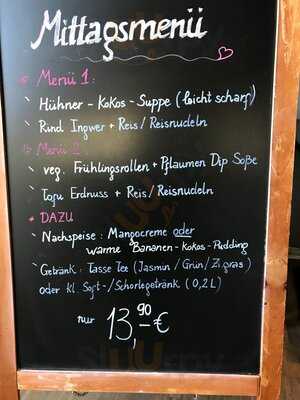 Mittagsmenü
Menü 1:
Hühner - Kokos - Suppe (leicht scharf)
Rind Ingwer + Reis / Reisnudeln
Menü 2
veg. Frühlingsrollen + Pflaumen Dip Soße
Tofu Erdnuss + Reis / Reisnudeln
+ DAZU
Nachspeise: Mangocreme oder
warme Bananen-Kokos-Pudding
Getränk: Tasse Tee (Jasmin / Grün / Zi.gras)
oder kl. Soft-/Schorlegetränk (0,2L)
nur 13,90 €